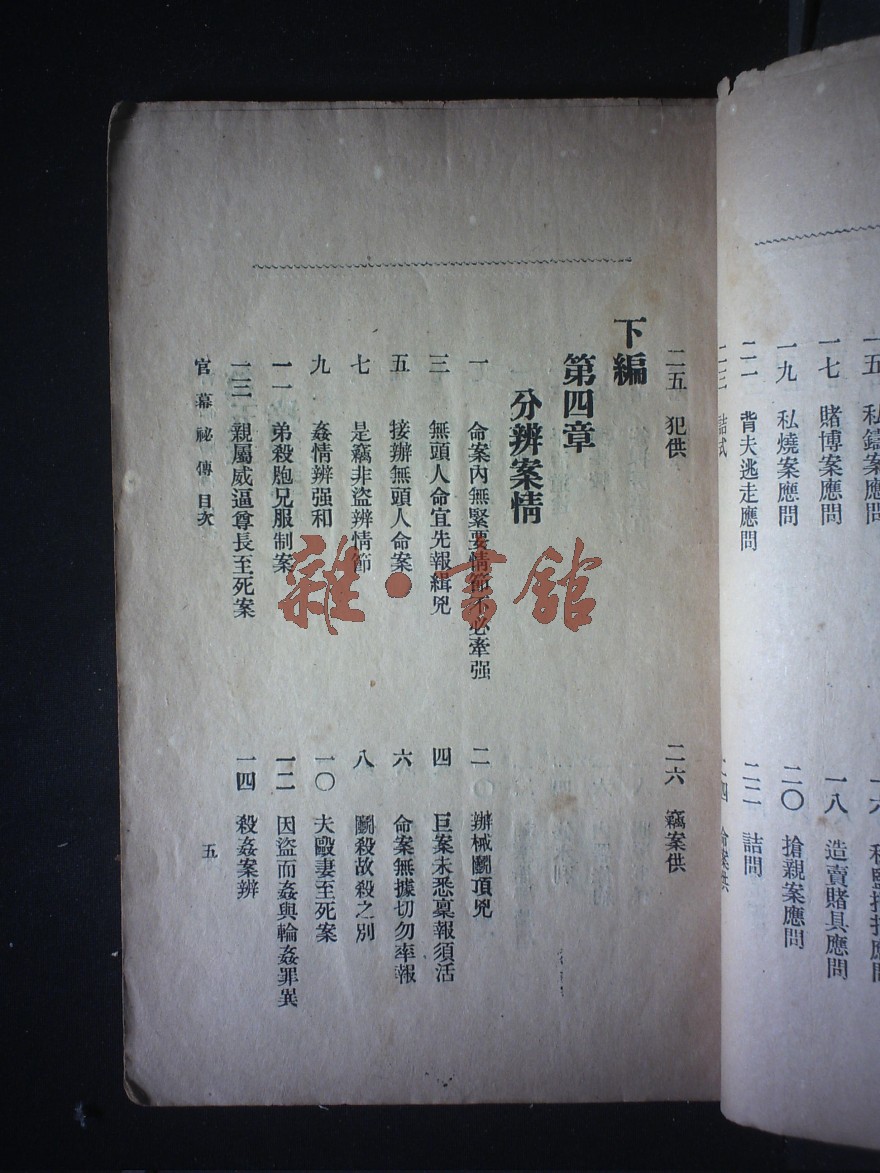 私鑄案應問
一七 賭博案應問
一八 造賣賭具應問
一九 私燒案應問
二〇 搶親案應問
二一 背夫逃走應問
二二 詰問
二五 犯供
二六 竊案供
下編
第四章
分辨案情
一 命案內無緊要情節不必牽强
二 辦械鬭頂兇
三 無頭人命宜先報緝兇
四 巨案未悉稟報須活
五 接辦無頭人命案
六 命案無據切勿率報
七 是竊非盜辨情節
八 鬭殺故殺之別
九 姦情辨强和
一〇 夫毆妻至死案
一一 弟殺胞兄服制案
一二 因盜而姦與輪姦罪異
一三 親屬威逼尊長至死案
一四 殺姦案辨
官幕祕傳 目次
五
雜·書館